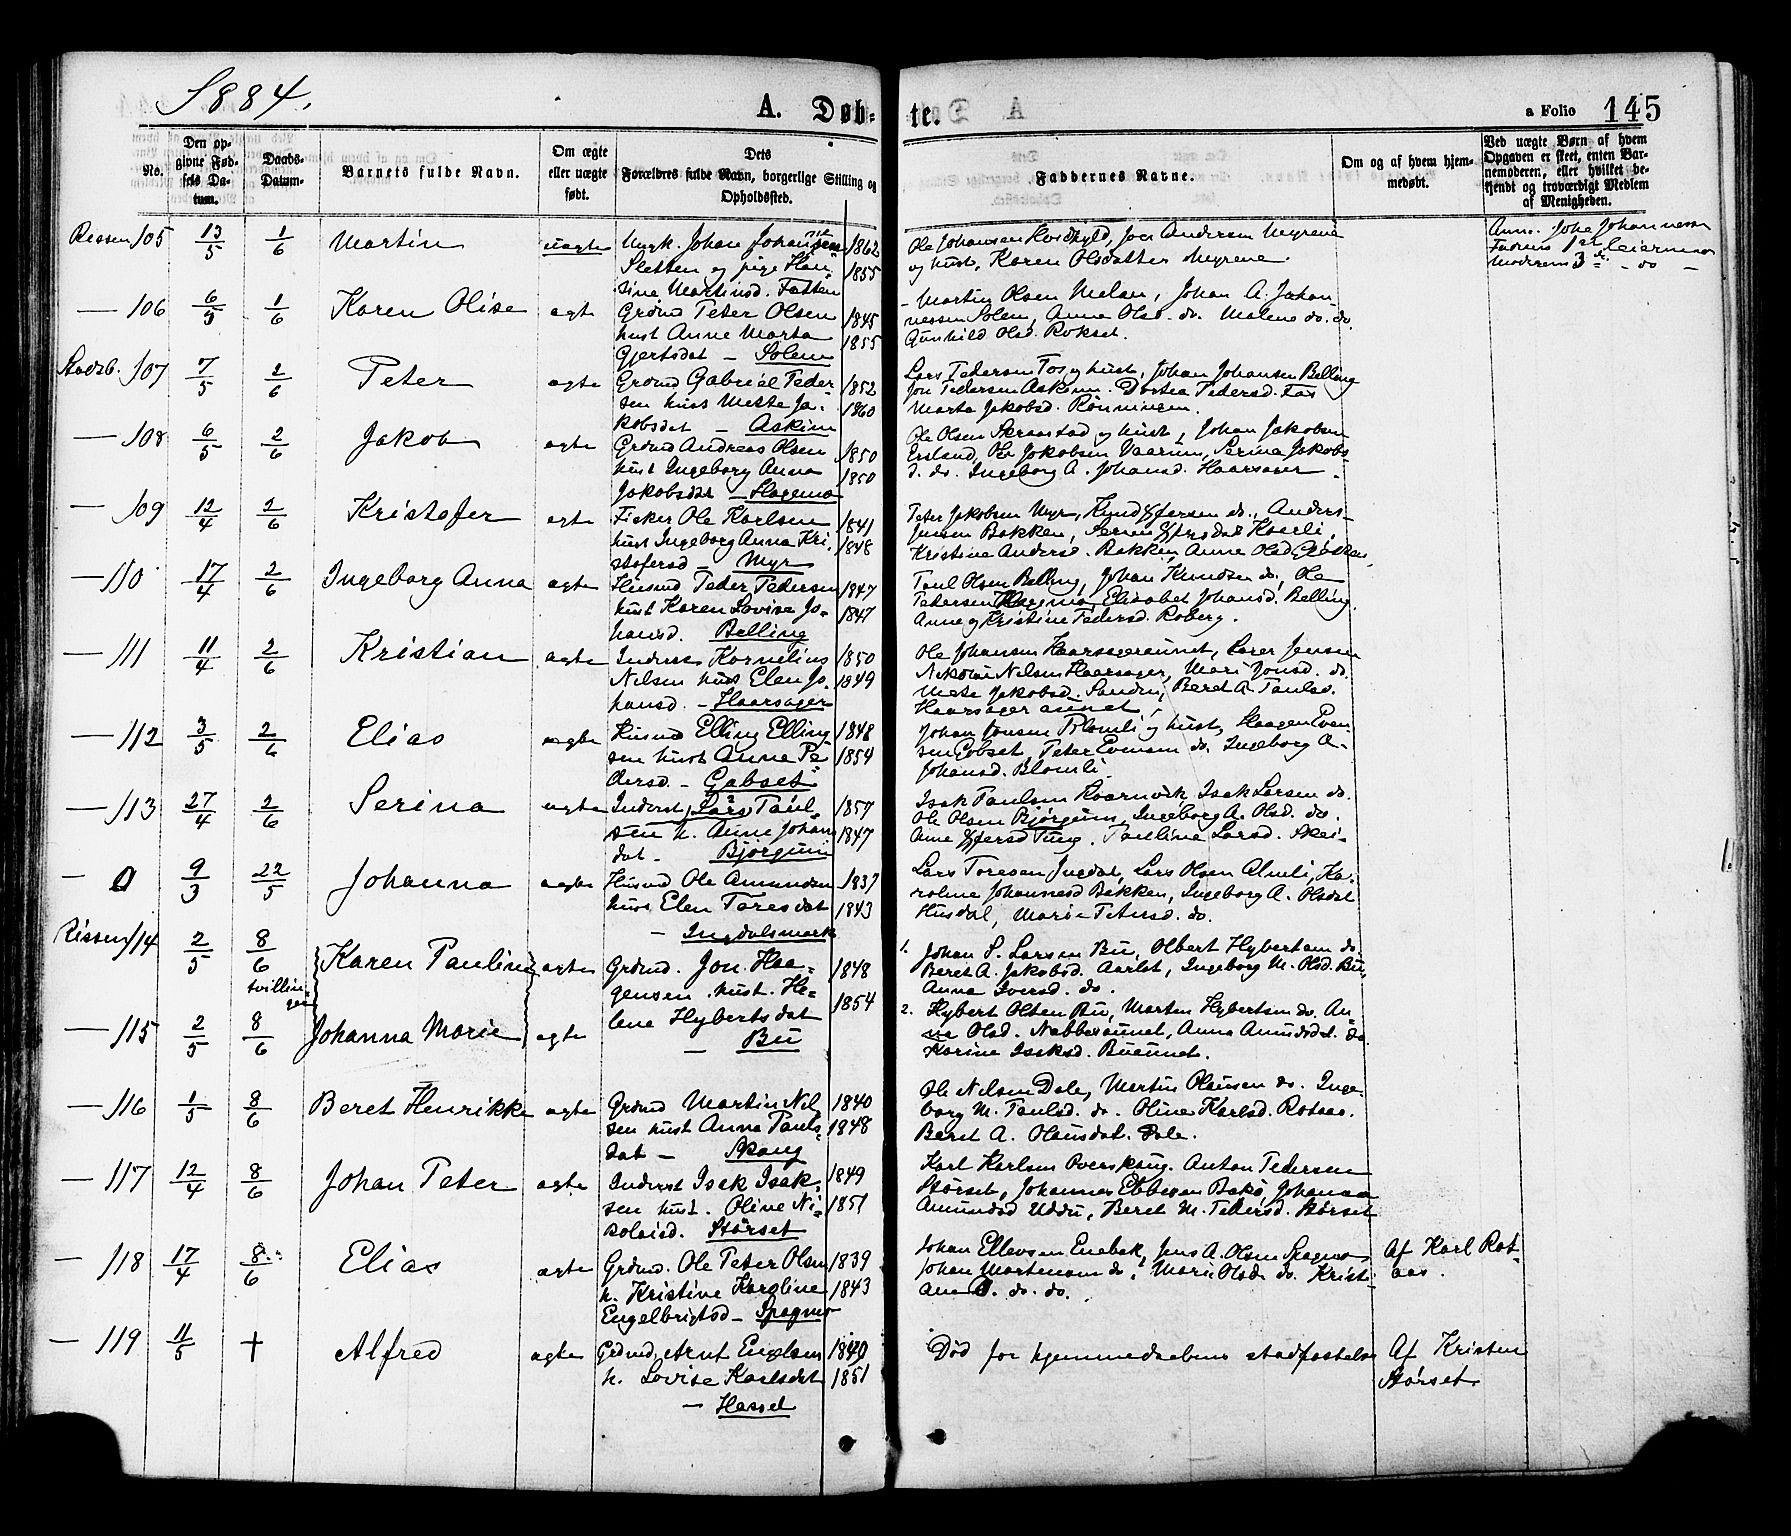 1884.
A. Døb-
te.
a Folio 145
No.
Den op-
givne Fød-
sels Da-
tum.
Daabs-
Datum.
Barnets fulde Navn.
Om ægte
eller uægte
født.
Dets
Forældres fulde Navn, borgerlige Stilling og
Opholdssted.
Faddernes Navne.
Om og af hvem hjem-
medøbt.
Ved uægte Børn af hvem
Opgaven er skeet, enten Bar-
nemoderen, eller hvilket be-
kjendt og troværdigt Medlem
af Menigheden.
Rissen 105 13/5 1/6 Martin uægte Ungk. Johan 1862
Sletten og pige Han- 1855
sine Martinsd. Fatten
Ole Johansen Andersen Myrene
og hust, Karen Olsdatter Myrene.
Fadrens 1ste leiermaal
Moderens 3de - do -
— 106 6/5 1/6 Karen Olise ægte Grdmd Peter Olsen 1845
hust Anne Marta 1855
Gjertsdat — Solem
Martin Olsen Melan, Johan A. Johan-
nessen Solem, Anna Olsd. do. Malene do. do.
Gunhild Olsd. Rokset.
Stadsb. 107 7/5 2/6 Peter ægte Grdmd Gabriel Peder- 1852
sen hust Mette Ja- 1860
kobsdat — Askim
Lars Pedersen Fos og hust, Johan Johansen Belling
Jon Pedersen Askim. Dortea Pedersd. Fos
Marta Jakobsd. Rønningen.
— 108 6/5 2/6 Jakob ægte Grdmd Andreas Olsen 1850
hust Ingeborg Anna 1850
Jakobsdat — Hagemo
Ole Olsen og hust, Johan Jakobsen
Ole Jakobsen Vaarum, Serina Jakobs-
d. do. Ingeborg A. Johansd. Haarsager.
— 109 12/4 2/6 Kristofer ægte Fisker Ole Karlsen 1841
hust Ingeborg Anna Kri- 1848
stofersd — Myr
Peter Jakobsen Myr, do., Anders
Jensen Bakken,
Kristine Andersd. Bakken, Anne Olsd
— 110 17/4 2/6 Ingeborg Anna ægte Husmd Peder Pedersen 1847
hust Karen Lovise Jo- 1847
hansd. Belling
Paul Olsen Belling, Johan Knudsen do, Ole
Pedersen Hagemo, Elisabet Johansd. Belling,
Anne og Kristine Pedersd. Roberg.
— 111 11/4 2/6 Kristian ægte Inderst Kornelius 1850
Nilsen hust Elen Jo- 1849
hansd. — Haarsager
Ole Johansen Haarsageraunet, Jensen
Nikolai Nilsen Haarsager, Mari Jonsd. do.
Mette Jakobsd. Sanden, Beret A. Paulsd.
Haarsageraunet.
— 112 3/5 2/6 Elias ægte Husmd Elling Elling- 1848
sen hust Anna Pe- 1854
dersd. — Gebset
Johan Jonsen Blomli og hust, Haagen Even-
sen Gebset, Peter Evensen do, Ingeborg A-
Johansd. Blomli.
— 113 27/4 2/6 Serina ægte Inderst, Lars Paul- 1857
sen h. Anne Johans- 1847
dat — Bjørgum
Isak Paulsen Kvernvik, Isak Larsen do.
Ole Olsen Bjørgum, Ingeborg A. Olsd. do.
Ane Tung. Paulina Larsd.
— 0 9/3 22/5 Johanna ægte Husmd Ole Amundsen 1837
hust Elen Toresdat 1843
— Ingdalsmark
Lars Toresen Ingdal, Lars Olsen Almli, Ka-
roline Johannesd Bakken, Ingeborg A. Olsdat
Husdal, Marie Petersd. do.
Rissen 114 2/5 8/6 Karen Pauline ægte Grdmd. Jon Haa- 1848
tvillin-
ger
gensen hust. He- 1854
lene Hybertsdat
— Bu
1. Johan S. Larsen Bu, Olbert Hybertsen do.
Beret A. Jakobsd. Aarlot, Ingeborg M. Olsd. Bu,
Anna Iversd. do.
— 115 2/5 8/6 Johanna Marie ægte
2. Hybert Olsen Bu, Morten Hybertsen do. An-
na Olsd. Nebbesaunet, Anna Amundsdat. do
Karine Isaksd. Buaunet.
— 116 1/5 8/6 Beret Henrikke ægte Grdmd Martin Nil- 1840
sen hust Anna Pauls- 1848
dat — Skaug
Ole Nilsen Dale, Martin Olausen do. Inge-
borg M. Paulsd. do. Oline Karlsd. Rotaas.
Beret A. Olausdat. Dale.
— 117 12/4 8/6 Johan Peter ægte Inderst Isak Isak- 1849
sen hust. Oline Ni- 1851
kolaisd. Størset
Karl Karlsen Overskaug. Anton Pedersen
Størset, Johannes Ebbesen Bakø, Johanna
Amundsd Uddu, Beret M. Pedersd. Størset
— 118 17/4 8/6 Elias ægte Grdmd. Ole Peter Olsen 1839
h. Kristine Karoline 1843
Engelbrigtsd — Spagmo
Johan Ellevsen Enebak, Jens A. Olsen Spagmo
Johan Mortensen do, Marie Olsd. do. Kristi-
ane O. do. do.
Af Karl Rot-
aas.
— 119 11/5 + Alfred ægte Grdmd. Arnt 1840
h. Lovise Karlsdat 1851
— Hassel
Død før hjemmedaabens stadfæstelse
Af Kristen
Størset.